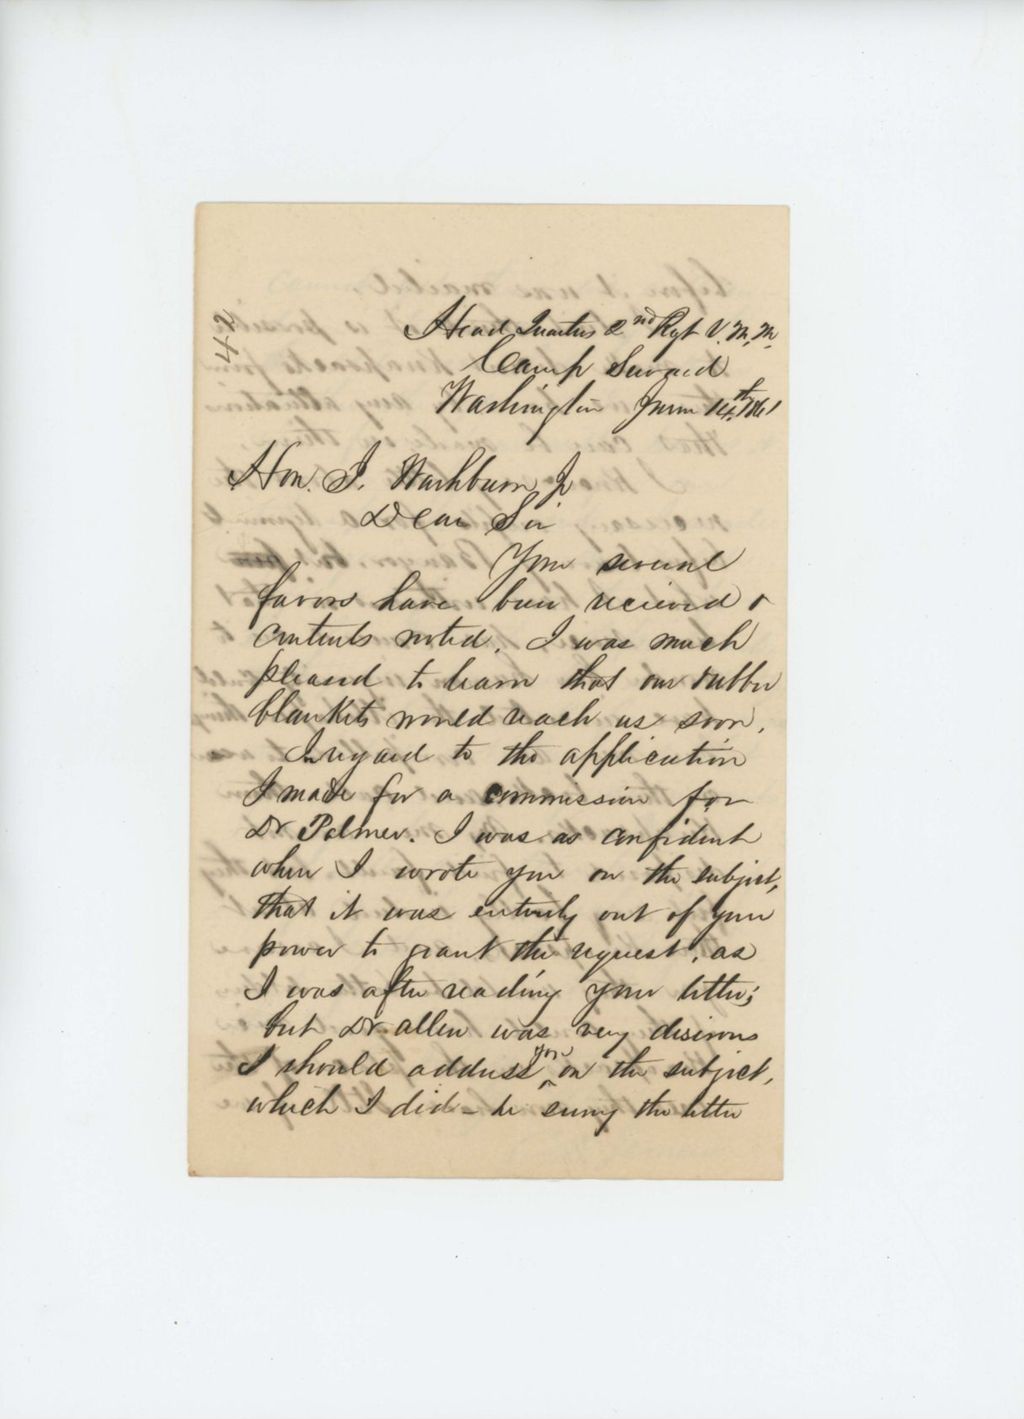 42
Head Quarters 2nd Rgt V. M. M.
Camp Seward
Washington June 14th, 1861
Hon. I. Washburn Jr
Dear Sir
Your several
favors have been recieved &
contents noted. I was much
pleased to learn that our rubber
blankets would reach us soon.
In regard to the application
I made for a commission for
Dr Palmer. I was as confident
when I wrote you on the subject,
that it was entirely out of your
power to grant the request, as
I was after reading your letter;
but Dr. Allen was very desirous
I should address you on the subject,
which I did - he seeing the letter